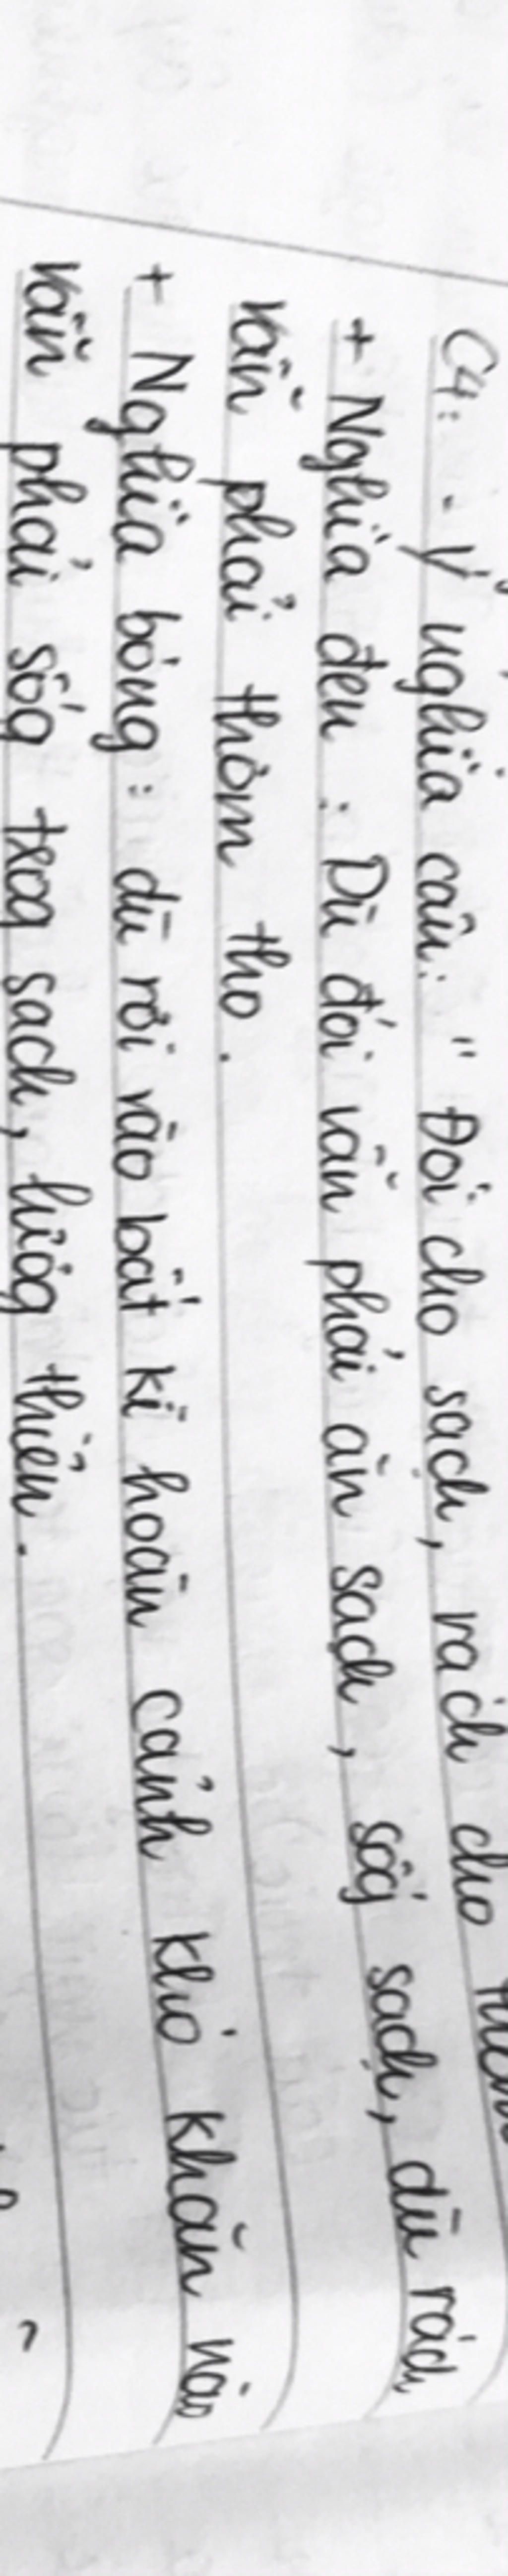 C4: - Ý nghĩa câu: " Đói cho sạch, rách cho
+ Nghĩa đen : Dù đói vẫn phải ăn sạch, sốg sạch, dù rách
vẫn phải thơm tho.
+ Nghĩa bóng : dù rơi vào bất kì hoàn cảnh khó khăn nào
vẫn phải sốg trog sạch, lươg thiện.